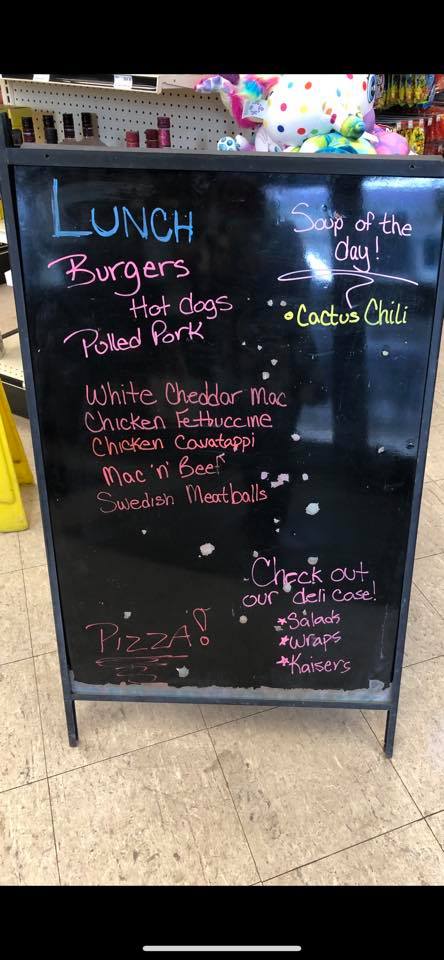 LUNCH
Burgers
Hot dogs
Pulled Pork
Soup of the
day!
• Cactus Chili
White Cheddar Mac
Chicken Fettuccine
Chicken Cavatappi
Mac 'n' Beef
Swedish Meatballs
PIZZA!
Check out
our deli case!
*Salads
*Wraps
*Kaisers